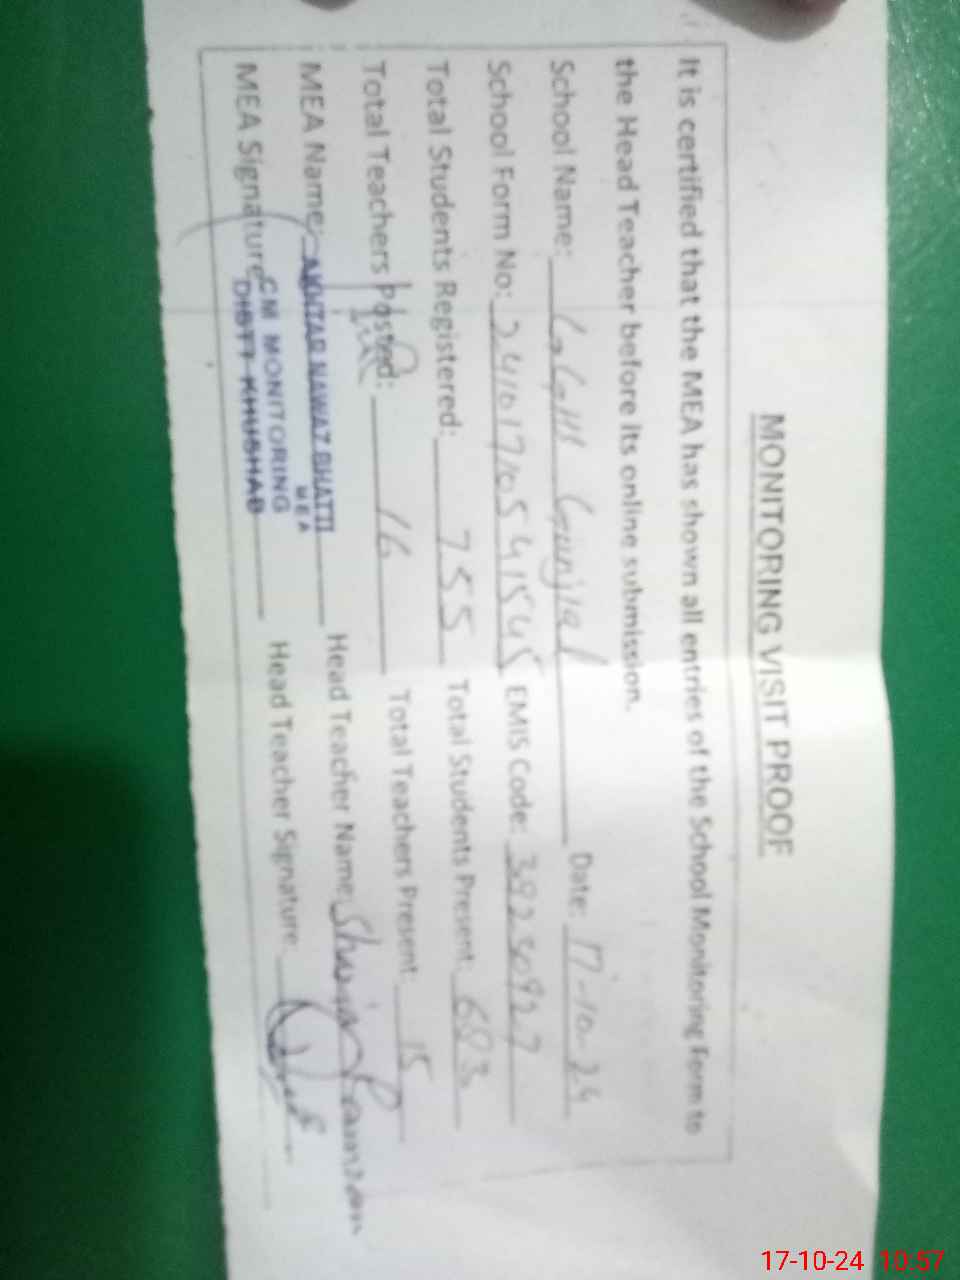 MONITORING VISIT PROOF
It is certified that the MEA has shown all entries of the School Monitoring Form to
the Head Teacher before its online submission.
School Name: Date: 17-10-24
School Form No: 24101710541545 EMIS Code:
Total Students Registered: 755 Total Students Present: 683
Total Teachers Posted: 16 Total Teachers Present: 15
MEA Name: AKHTAR NAWAZ BHATTI Head Teacher Name:
MEA
MEA Signature CM MONITORING Head Teacher Signature
DISTT KHUSHAB
17-10-24 10:57